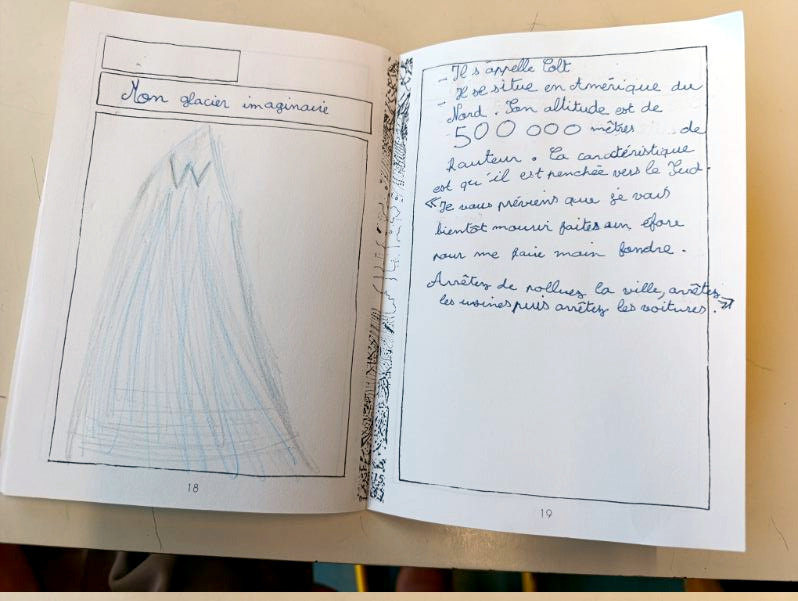 Mon glacier imaginaire
18
- Il s'appelle Colt
- Il se situe en Amérique du
Nord. Son altitude est de
500 000 mètres de
hauteur. Ca caractéristique
est qu'il est penchée vers le Sud.
«Je vous préviens que je vais
bientot mourir faites un éfore
pour me faire moin fondre.
Arrêtez de polluez la ville, arrêtez
les usines puis arrêtez les voitures.»
19